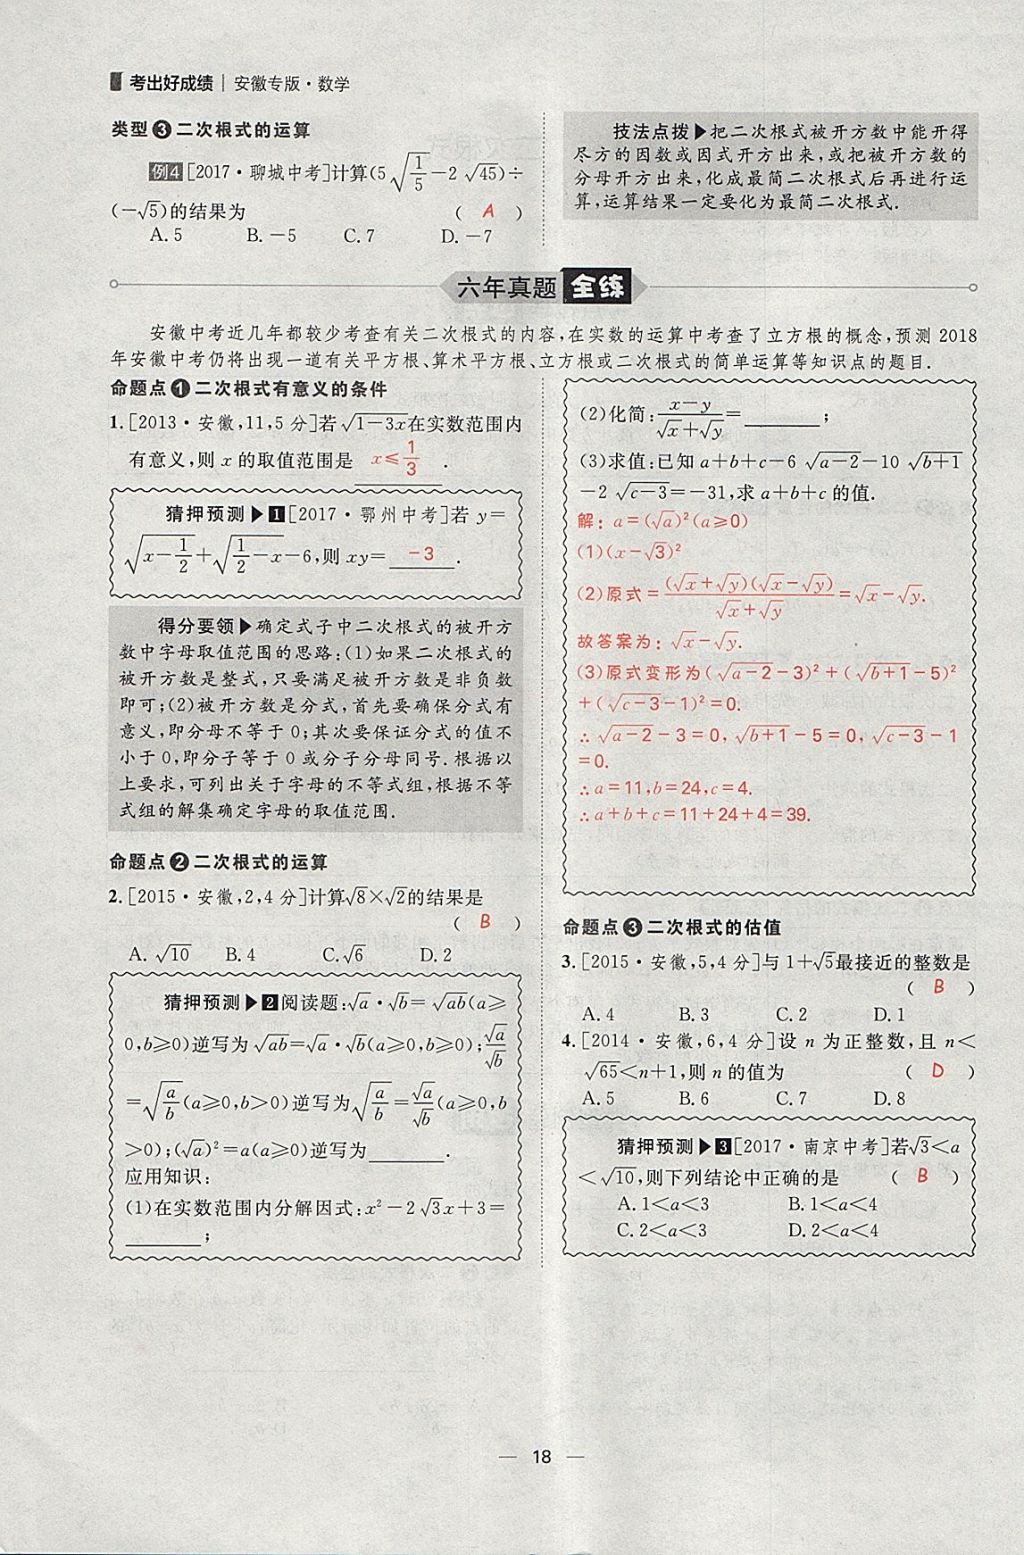 考出好成绩 | 安徽专版·数学
类型❸二次根式的运算
例4 [2017·聊城中考]计算(5√(1/5)-2√45)÷
(-√5)的结果为 ( A )
A.5 B.-5 C.7 D.-7
技法点拨▶把二次根式被开方数中能开得
尽方的因数或因式开方出来,或把被开方数的
分母开方出来,化成最简二次根式后再进行运
算,运算结果一定要化为最简二次根式.
六年真题 全练
安徽中考近几年都较少考查有关二次根式的内容,在实数的运算中考查了立方根的概念,预测 2018
年安徽中考仍将出现一道有关平方根、算术平方根、立方根或二次根式的简单运算等知识点的题目.
命题点❶二次根式有意义的条件
1.[2013·安徽,11,5分]若√(1-3x)在实数范围内
有意义,则 x 的取值范围是 x≤1/3 .
猜押预测▶1[2017·鄂州中考]若 y=
√(x-1/2)+√(1/2-x)-6,则 xy= -3 .
得分要领▶确定式子中二次根式的被开方
数中字母取值范围的思路:(1)如果二次根式的
被开方数是整式,只要满足被开方数是非负数
即可;(2)被开方数是分式,首先要确保分式有
意义,即分母不等于 0;其次要保证分式的值不
小于 0,即分子等于 0 或分子分母同号.根据以
上要求,可列出关于字母的不等式组,根据不等
式组的解集确定字母的取值范围.
命题点❷二次根式的运算
2.[2015·安徽,2,4分]计算√8×√2的结果是
( B )
A.√10 B.4 C.√6 D.2
猜押预测▶2阅读题:√a·√b=√ab(a≥
0,b≥0)逆写为√ab=√a·√b(a≥0,b≥0);√a/√b
=√(a/b)(a≥0,b>0)逆写为√(a/b)=√a/√b(a≥0,b
>0);(√a)²=a(a≥0)逆写为________.
应用知识:
(1)在实数范围内分解因式:x²-2√3x+3=
________;
(2)化简:(x-y)/(√x+√y)=________;
(3)求值:已知 a+b+c-6√(a-2)-10√(b+1)
-2√(c-3)=-31,求 a+b+c 的值.
解:a=(√a)²(a≥0)
(1)(x-√3)²
(2)原式=(√x+√y)(√x-√y)/(√x+√y)=√x-√y.
故答案为:√x-√y.
(3)原式变形为(√(a-2)-3)²+(√(b+1)-5)²
+(√(c-3)-1)²=0.
∴√(a-2)-3=0,√(b+1)-5=0,√(c-3)-1
=0.
∴a=11,b=24,c=4.
∴a+b+c=11+24+4=39.
命题点❸二次根式的估值
3.[2015·安徽,5,4分]与 1+√5最接近的整数是
( B )
A.4 B.3 C.2 D.1
4.[2014·安徽,6,4分]设 n 为正整数,且 n<
√65<n+1,则 n 的值为 ( D )
A.5 B.6 C.7 D.8
猜押预测▶3[2017·南京中考]若√3<a
<√10,则下列结论中正确的是 ( B )
A.1<a<3 B.1<a<4
C.2<a<3 D.2<a<4
— 18 —